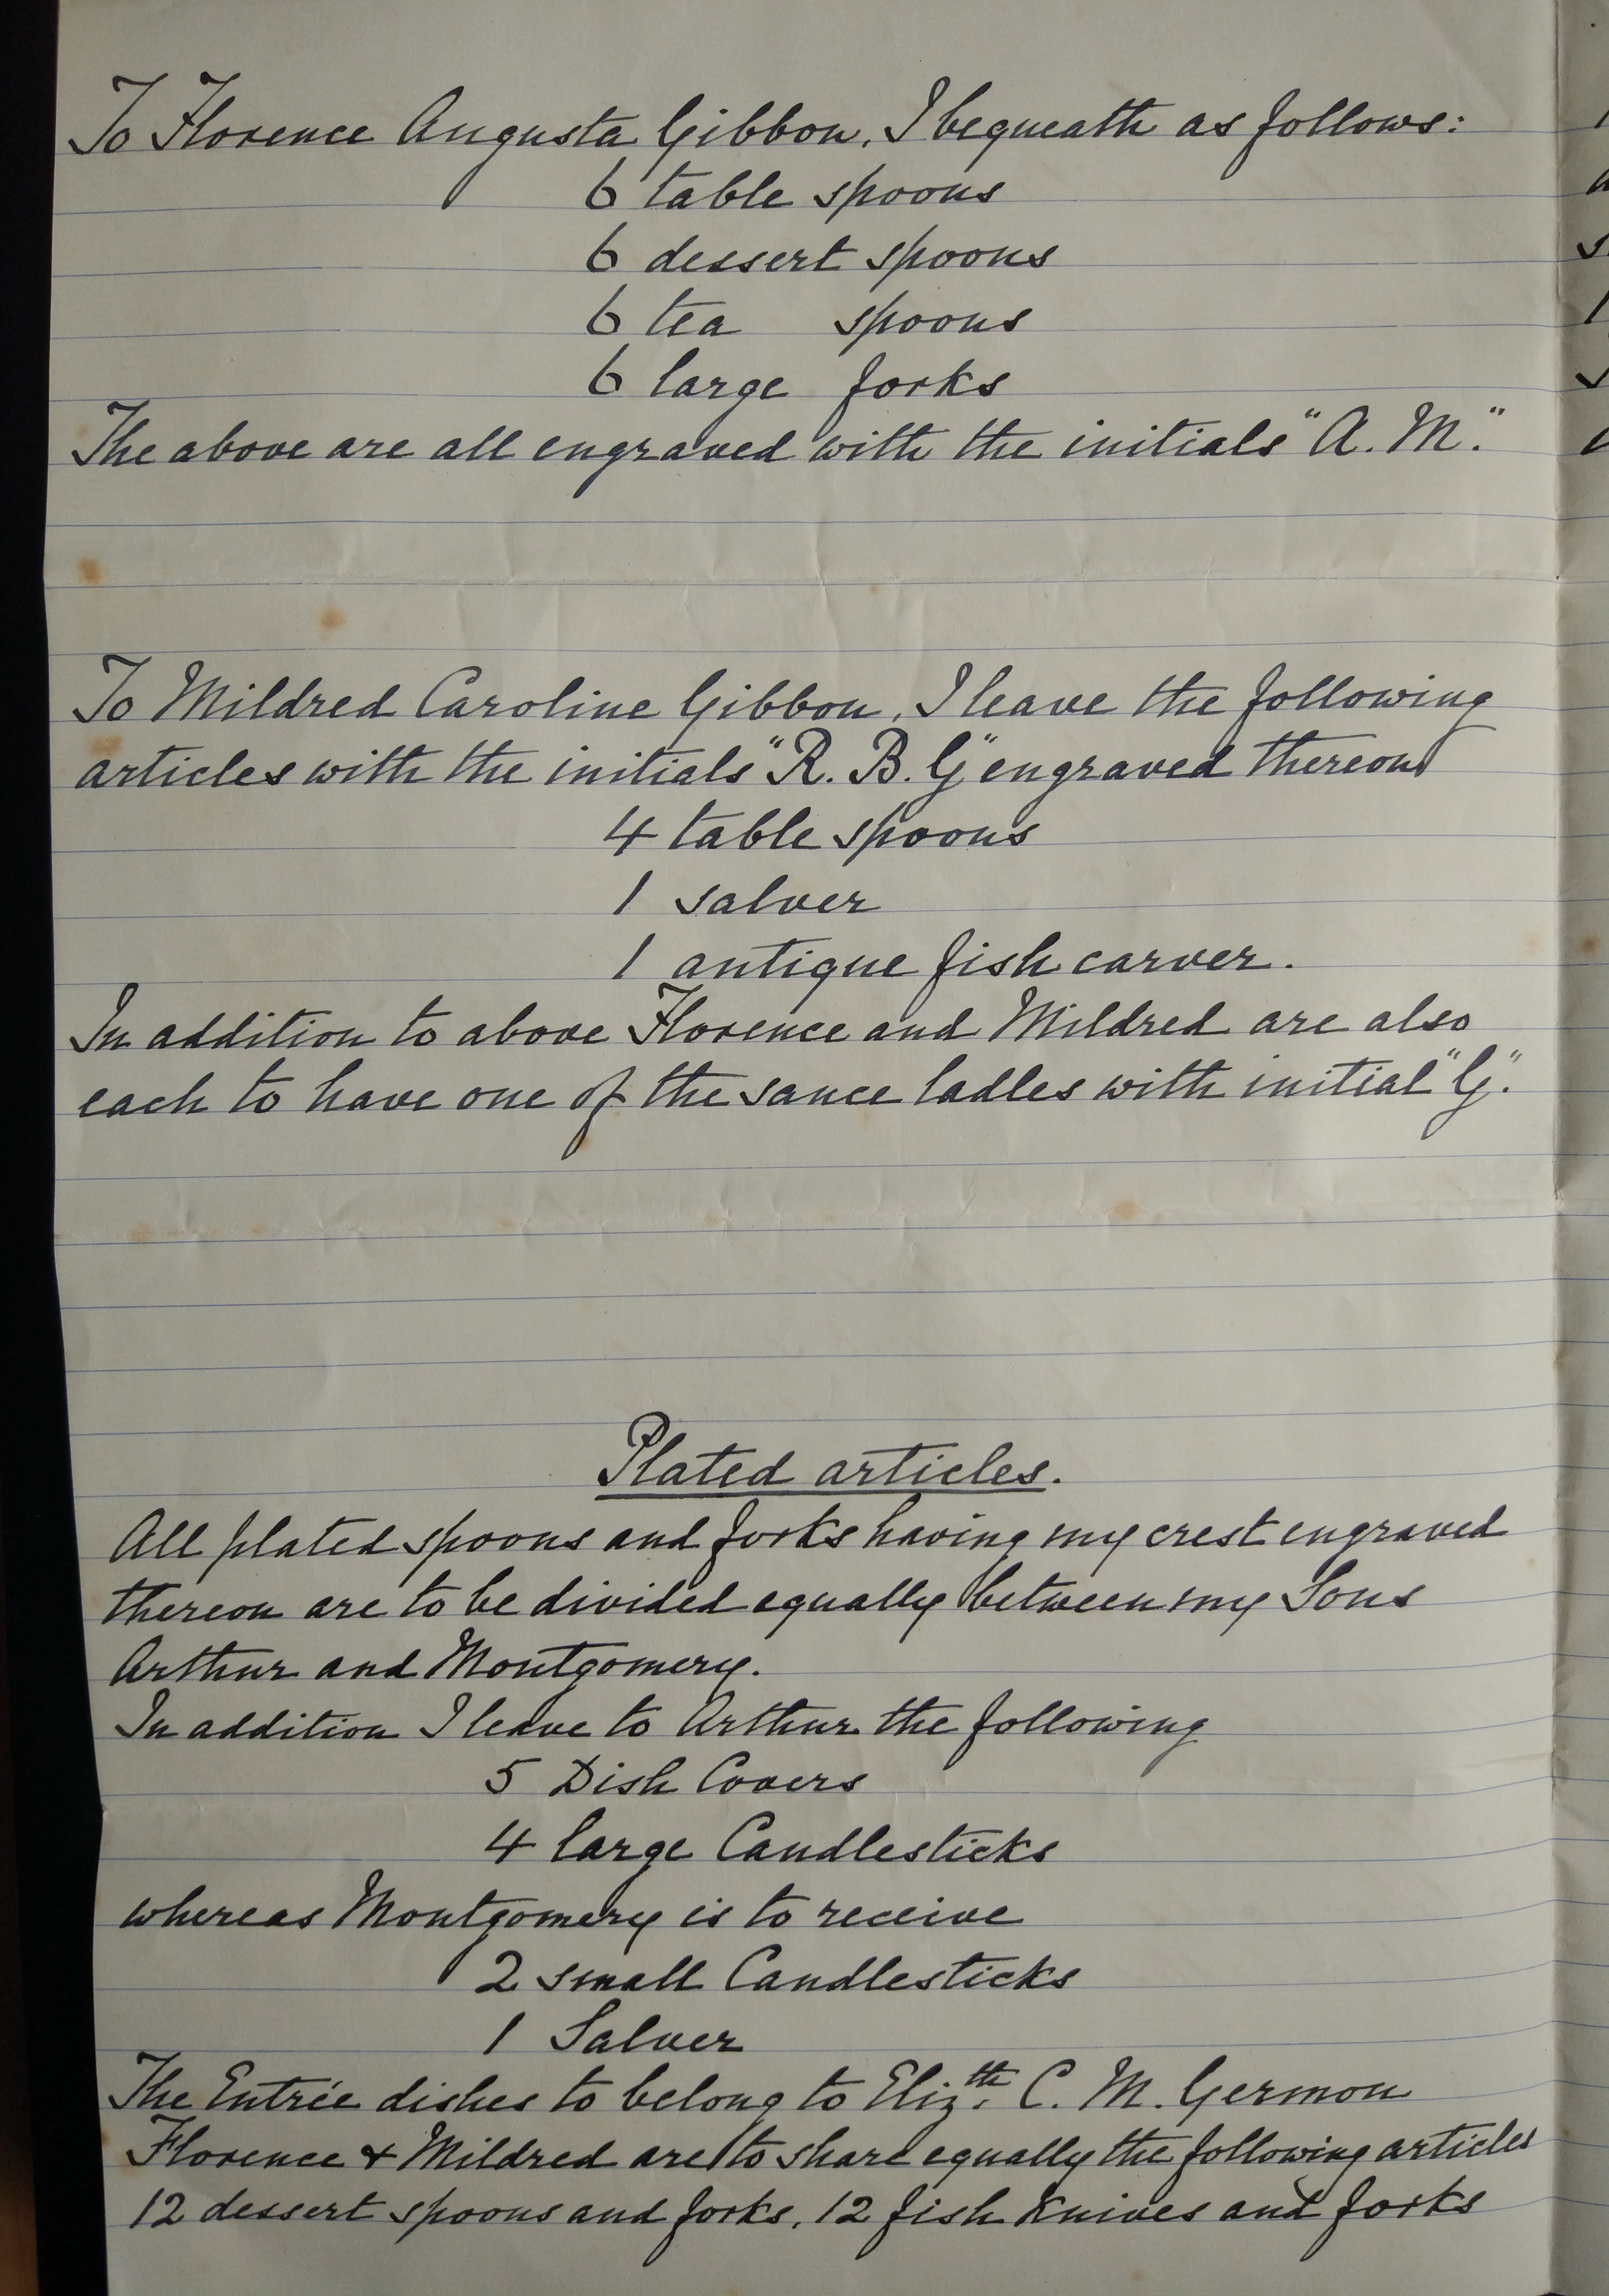 To Florence Augusta Gibbon, I bequeath as follows:
6 table spoons
6 dessert spoons
6 tea spoons
6 large forks
The above are all engraved with the initials "A. M."
To Mildred Caroline Gibbon, I leave the following
articles with the initials "R. B. G" engraved thereon
4 table spoons
1 salver
1 antique fish carver.
In addition to above Florence and Mildred are also
each to have one of the sauce ladles with initial "G".
Plated articles.
All plated spoons and forks having my crest engraved
thereon are to be divided equally between my Sons
Arthur and Montgomery.
In addition I leave to Arthur the following
5 Dish Covers
4 large Candlesticks
whereas Montgomery is to receive
2 small Candlesticks
1 Salver
The Entrée dishes to belong to Eliz.th C. M. Germon
Florence & Mildred are to share equally the following articles
12 dessert spoons and forks, 12 fish knives and forks